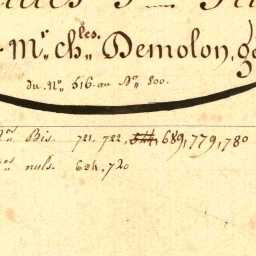 Mr. ch.les Demolon, gé
du No. 516 au No. 800.
Bis. 721, 722, 544, 689, 779, 780
nuls. 624, 720